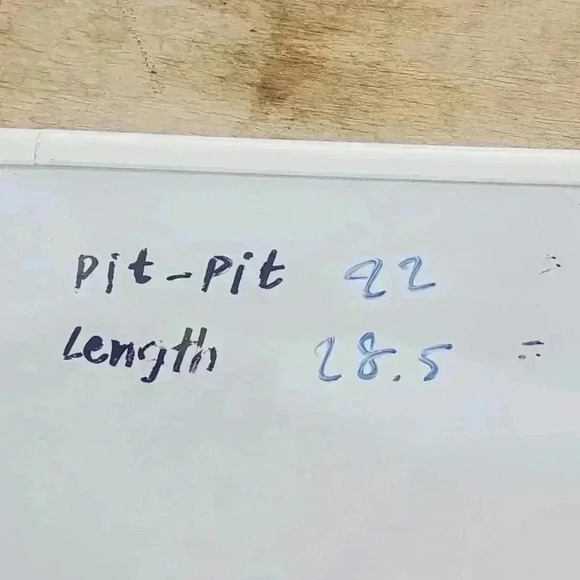 Pit-Pit 22
Length 28.5